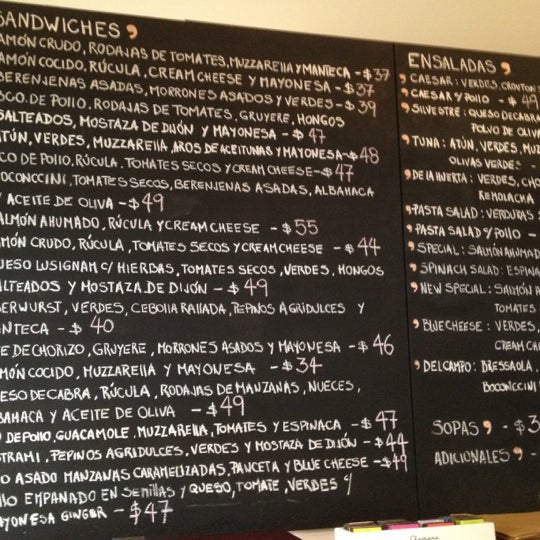 SANDWICHES
AMÓN CRUDO, RODAJAS DE TOMATES, MUZZARELLA Y MANTECA - $37
AMÓN COCIDO, RÚCULA, CREAM CHEESE Y MAYONESA - $37
BERENJENAS ASADAS, MORRONES ASADOS Y VERDES - $39
SCO DE POLLO, RODAJAS DE TOMATES, GRUYERE, HONGOS
SALTEADOS, MOSTAZA DE DIJÓN Y MAYONESA - $47
ATÚN, VERDES, MUZZARELLA, AROS DE ACEITUNAS Y MAYONESA - $48
CO DE POLLO, RÚCULA, TOMATES SECOS Y CREAM CHEESE - $47
OCONCCINI, TOMATES SECOS, BERENJENAS ASADAS, ALBAHACA
Y ACEITE DE OLIVA - $49
ALMÓN AHUMADO, RÚCULA Y CREAM CHEESE - $55
AMÓN CRUDO, RÚCULA, TOMATES SECOS Y CREAM CHEESE - $44
UESO LUSIGNAM C/ HIERBAS, TOMATES SECOS, VERDES, HONGOS
ALTEADOS Y MOSTAZA DE DIJÓN - $49
ERWURST, VERDES, CEBOLLA RALLADA, PEPINOS AGRIDULCES Y
NTECA - $40
E DE CHORIZO, GRUYERE, MORRONES ASADOS Y MAYONESA - $46
MÓN COCIDO, MUZZARELLA Y MAYONESA - $34
ESO DE CABRA, RÚCULA, RODAJAS DE MANZANAS, NUECES,
BAHACA Y ACEITE DE OLIVA - $49
O DE POLLO, GUACAMOLE, MUZZARELLA, TOMATES Y ESPINACA - $47
STRAMI, PEPINOS AGRIDULCES, VERDES Y MOSTAZA DE DIJÓN - $44
O ASADO MANZANAS CARAMELIZADAS, PANCETA Y BLUE CHEESE - $49
LLO EMPANADO EN SEMILLAS Y QUESO, TOMATE, VERDES C/
AYONESA GINGER - $47
ENSALADAS
CAESAR: VERDES, CROUTON
CAESAR Y POLLO - $49
SILVESTRE: QUESO DE CABRA
POLVO DE OLIVA
TUNA: ATÚN, VERDES, MUZ
OLIVAS VERDES -
DE LA HUERTA: VERDES, CHO
REMOLACHA
PASTA SALAD: VERDURAS
PASTA SALAD Y POLLO -
SPECIAL: SALMÓN AHUMAD
SPINACH SALAD: ESPINA
NEW SPECIAL: SALMÓN A
TOMATES
BLUE CHEESE: VERDES,
CREAM CH
DEL CAMPO: BRESSAOLA,
BOCONCCINI
SOPAS - $3
ADICIONALES - $